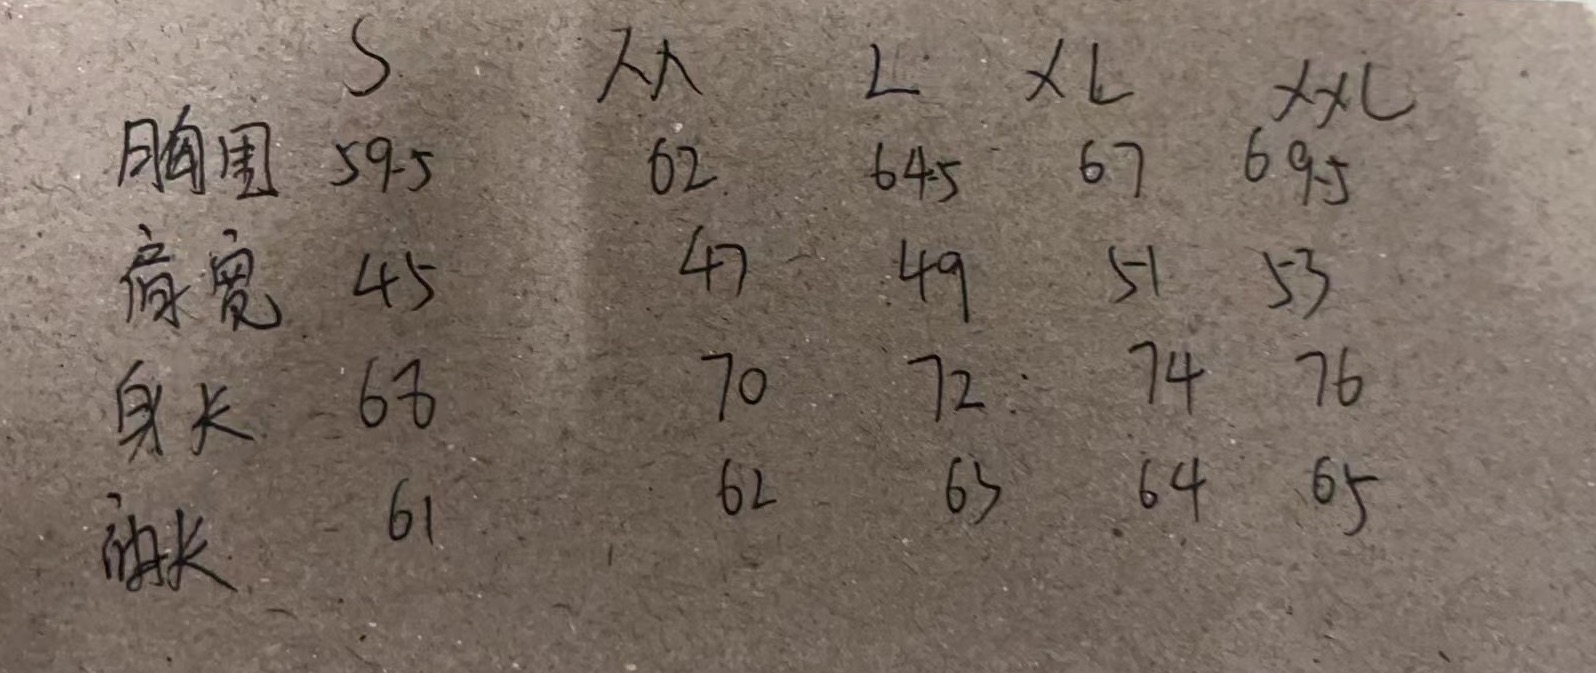 S M L XL XXL
胸围 59.5 62 64.5 67 69.5
肩宽 45 47 49 51 53
身长 68 70 72 74 76
袖长 61 62 63 64 65